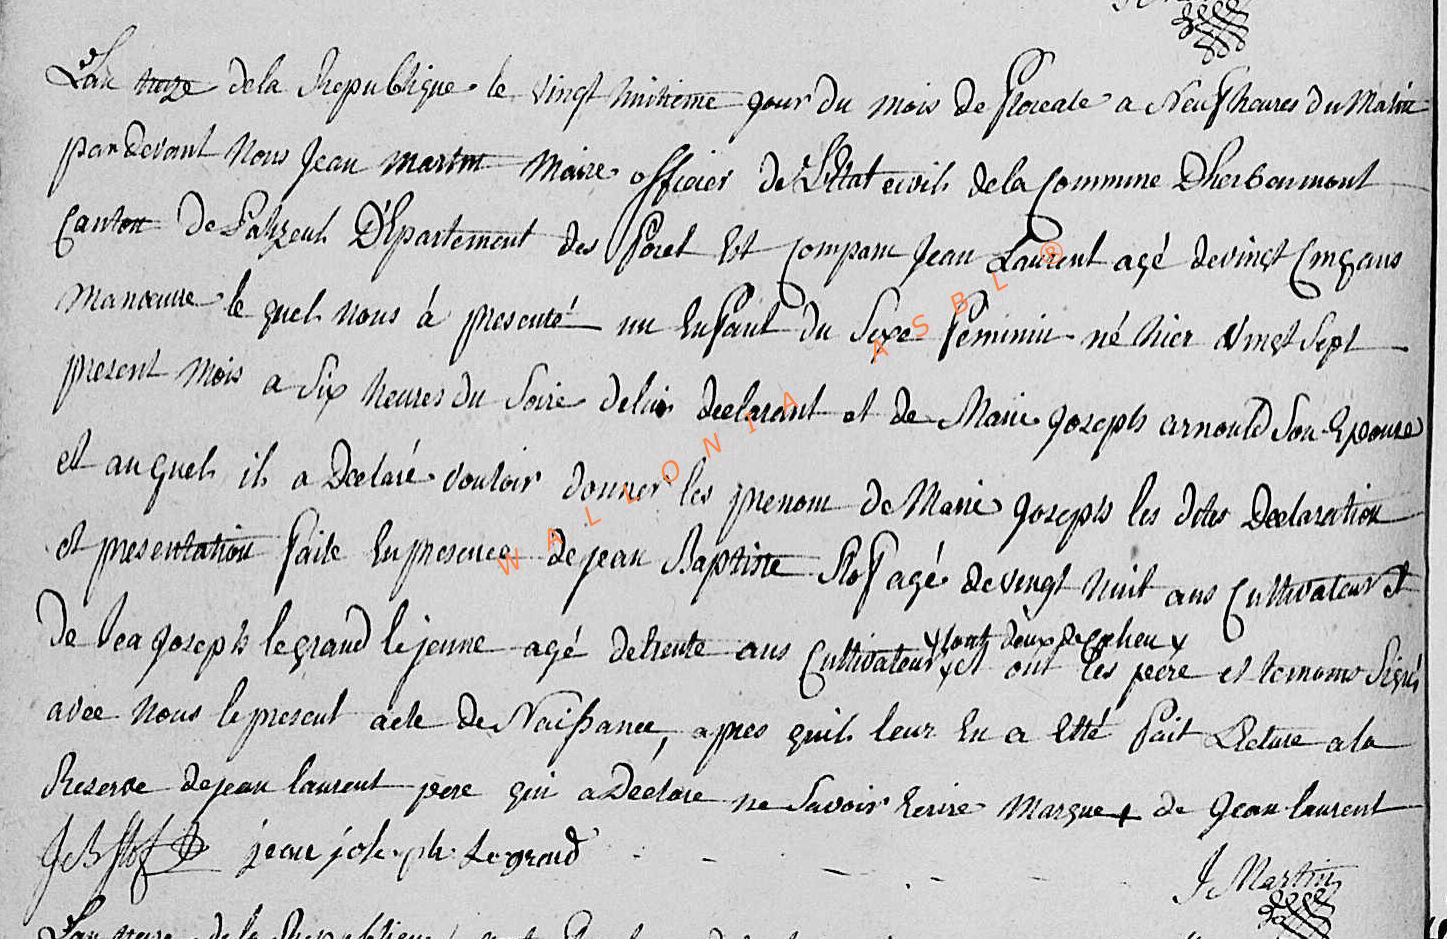 L'an treize de la Republique le vingt huitieme jour du mois de floreale a Neuf heures du Matin
pardevant Nous Jean martin Maire officier de L'Etat civil de la Commune Dherbeumont
Canton de Palizeul Département des Foret Est Comparu Jean Laurent agé de vingt Cinq ans
Manœuvre le quel nous à presenté un Enfant du Sexe Feminin né hier vingt Sept
present Mois a Six heures du Soire de lui declarant et de Marie Joseph arnould Son Epouse
et au quel il a Declaré vouloir donner les prenom de Marie Joseph les dites Declaration
et presentation faite En presence de jean Baptiste Stof agé de vingt huit ans Cultivateur et
de Jean Joseph le grand le jeune agé de trente ans Cultivateur x et ont les peere et temoins Signé
x touts deux de ce lieu x
avec Nous le present acte de Naissance, apres quil leur En a Etté fait Lecture a la
Reserve de jean laurent pere qui a Declare ne Savoir Ecrire Marque + de Jean laurent
J B Stof jean joseph Legrand
J Martin
L'an treize de la Republique
WALLONIA ASBL ®